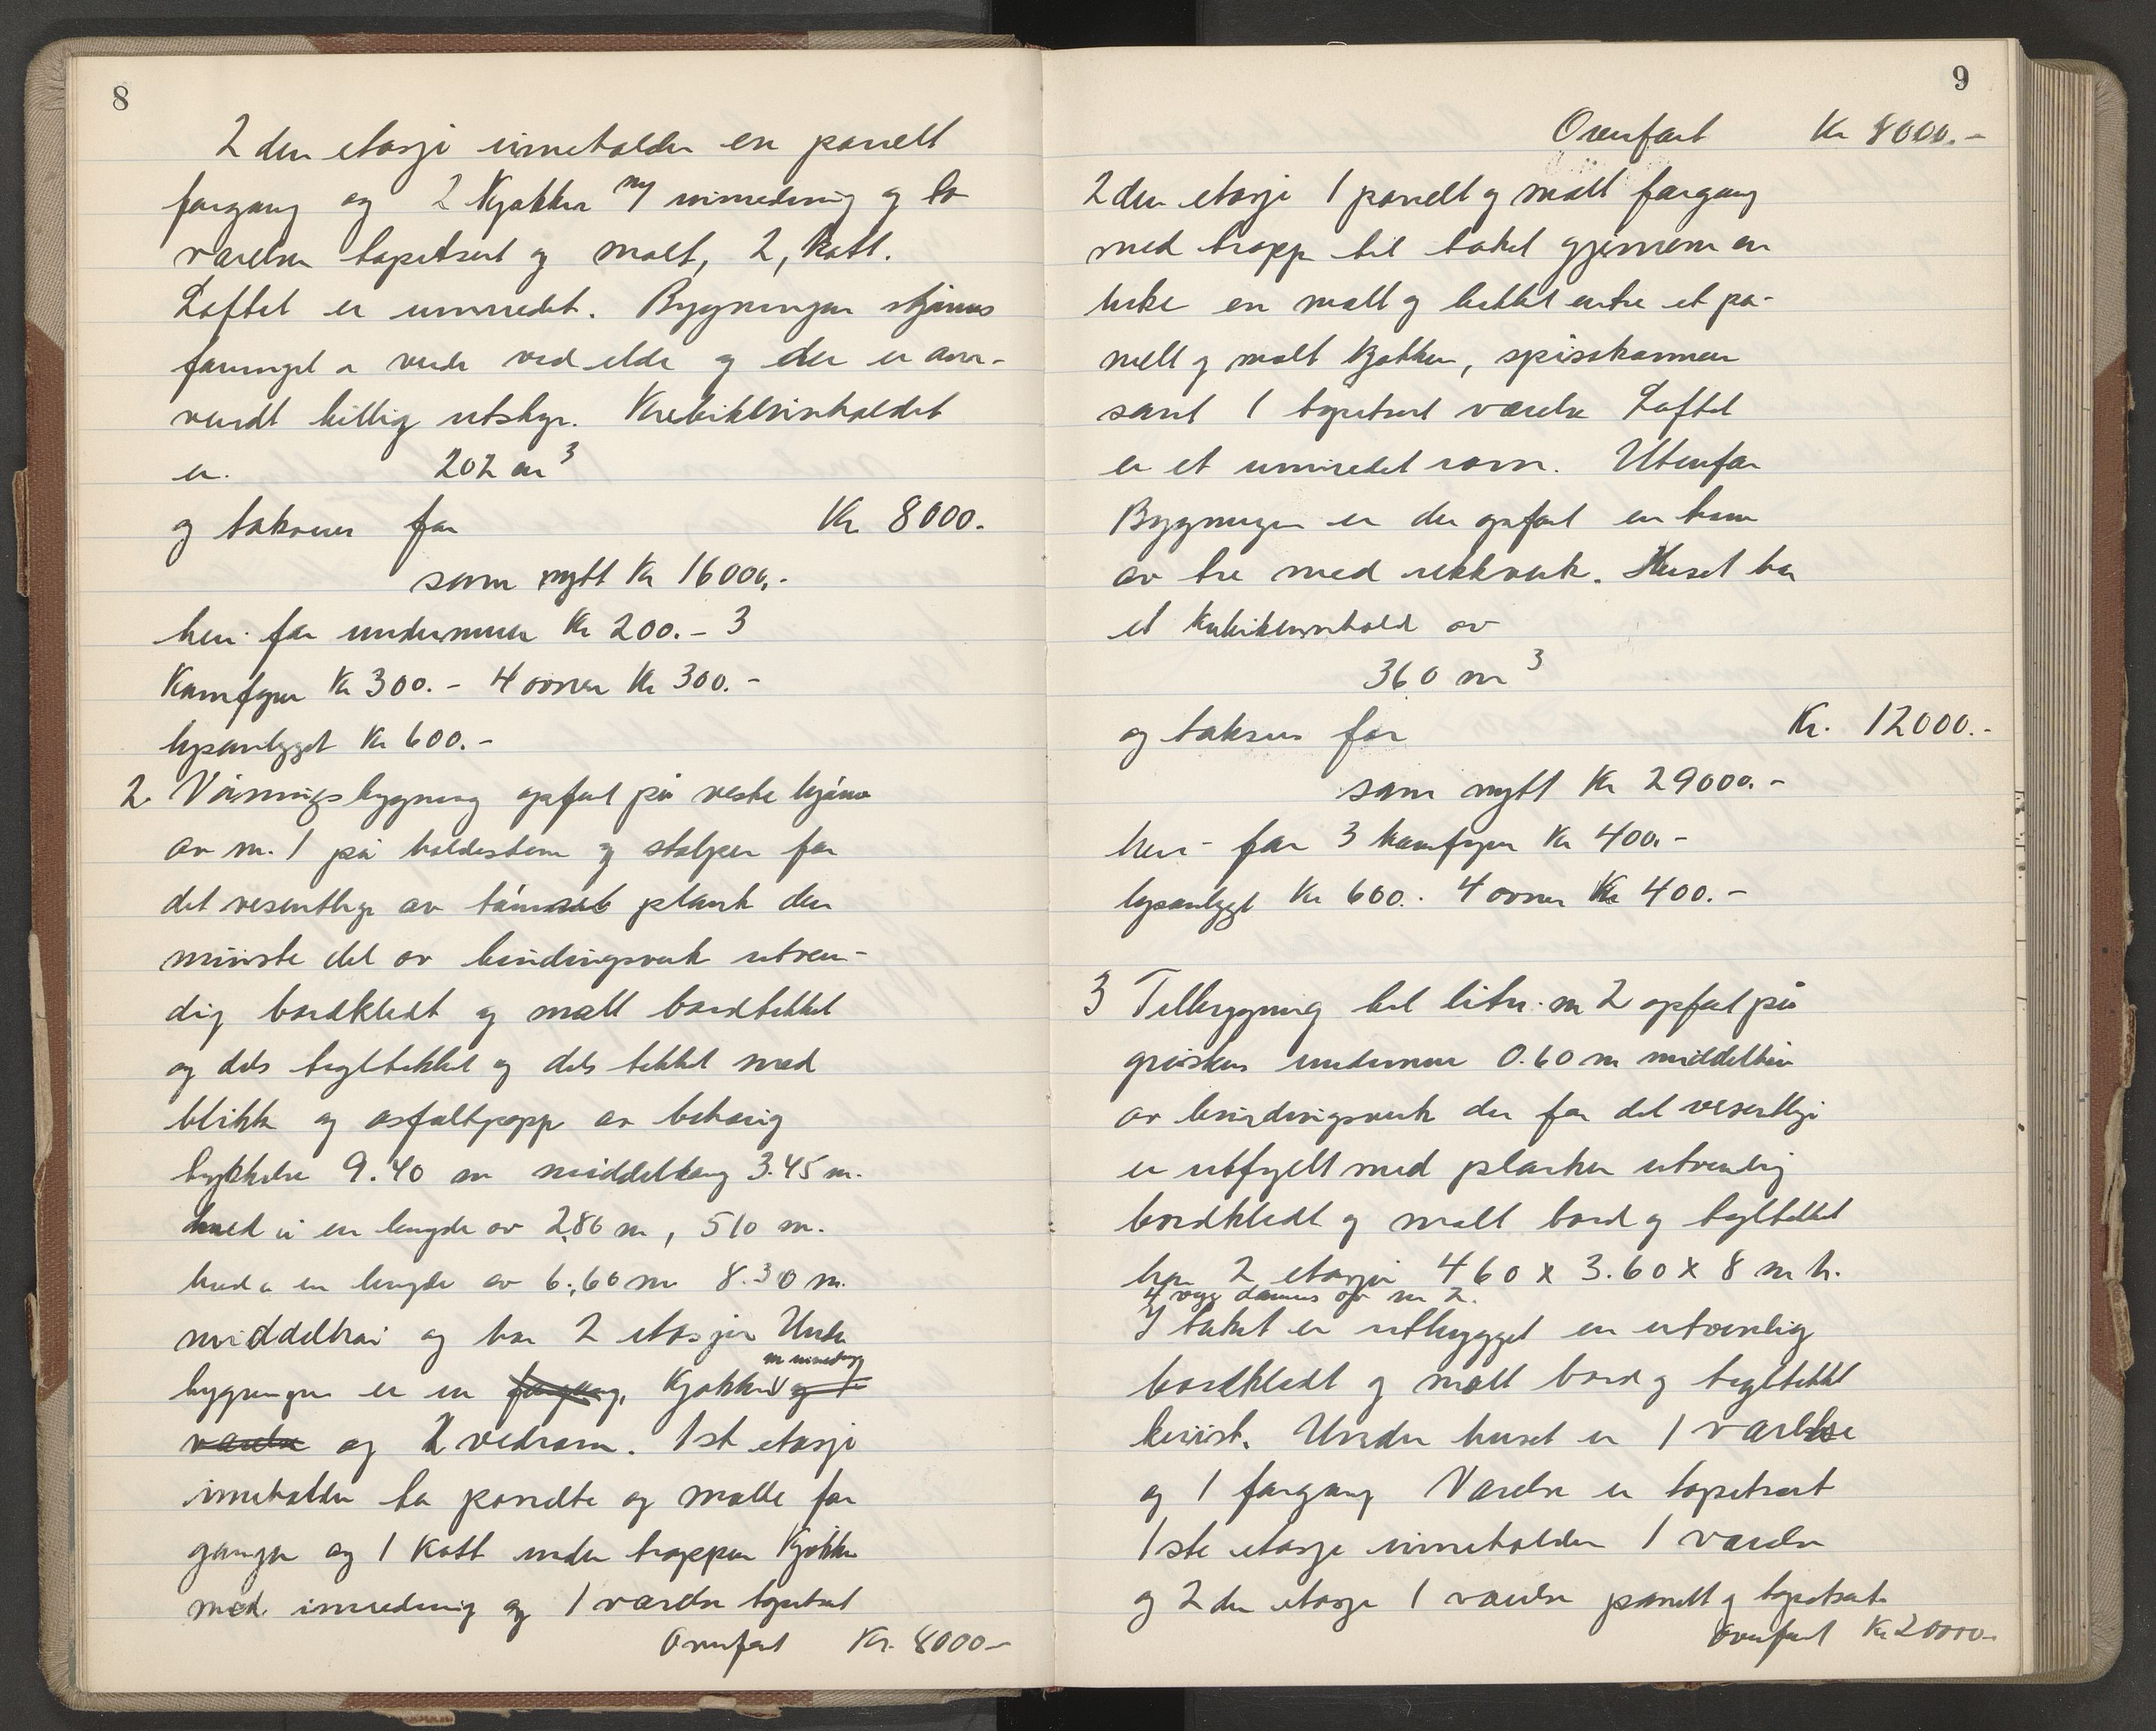 8
2den etasje inneholder en panelt
forgang og 2 kjøkken m/ innredning og to
værelser tapetsert og malt, 2, kott.
Loftet er uinnredet. Bygningen skjønnes
forringet a verdi ved elde og der er an-
vendt billig utstyr. Kubikkinnholdet
er. 202 m³
og takseres for Kr 8000.
som nytt Kr 16000.-
her. for undermur Kr 200.- 3
Komfyrer Kr 300.- 4 ovner Kr 300.-
lysanlegget Kr 600.-
2. Våningsbygning opført på vestre hjørne
av nr. 1 på holdesten og stolper for
det vesentlige av tømret plank den
minste del av bindingsverk utven-
dig bordkledt og malt bordtekket
og dels tegltekket og dels tekket med
blikk og asfaltpapp av behørig
tykkelse 9.40 m middellang 3.45 m.
bred i en lengde av 2.80 m, 510 m.
bred i en lengde av 6.60 m 8.30 m.
middelhøi og har 2 etasjer Under
m innredning
bygningen er en forgang, kjøkken og 1
værelse og 2 vedrom. 1st etasje
inneholder to panelte og malte for
ganger og 1 Kott under trappen Kjøkken
med innredning og 1 værelse tapetsert
Overført Kr. 8000-
9
Overført Kr 8000.-
2den etasje 1 panelt og malt forgang
med trapp til taket gjennem en
luke en malt og tekket entre et pa-
nelt og malt kjøkken, spisskammer
samt 1 tapetsert værelse Loftet
er et uinnredet rom. Utenfor
Bygningen er der opført en tram
av tre med rekkverk. Huset har
et kubikkinnhold av
360 m³
og takseres for Kr. 12000.-
som nytt Kr 29000.-
her- for 3 komfyrer Kr 400.-
lysanlegget Kr 600.- 4 ovner Kr 400.-
3 Tilbygning til litr. nr 2 opført på
gråstens undermur 0.60 m middelhøi
av bindingsverk der for det vesentlige
er utfylt med planker utvendig
bordkledt og malt bord og tegltekket
har 2 etasjer 460 x 3.60 x 8 m h.
4 vegg dannes av nr 2.
I taket er utbygget en utvendig
bordkledt og malt bord og tegltekket
kvist. Under huset er 1 værelse
og 1 forgang Værelset er tapetsert
1ste etasje inneholder 1 værelse
og 2den etasje 1 værelse panelt og tapetsert.
Overført Kr 20000-